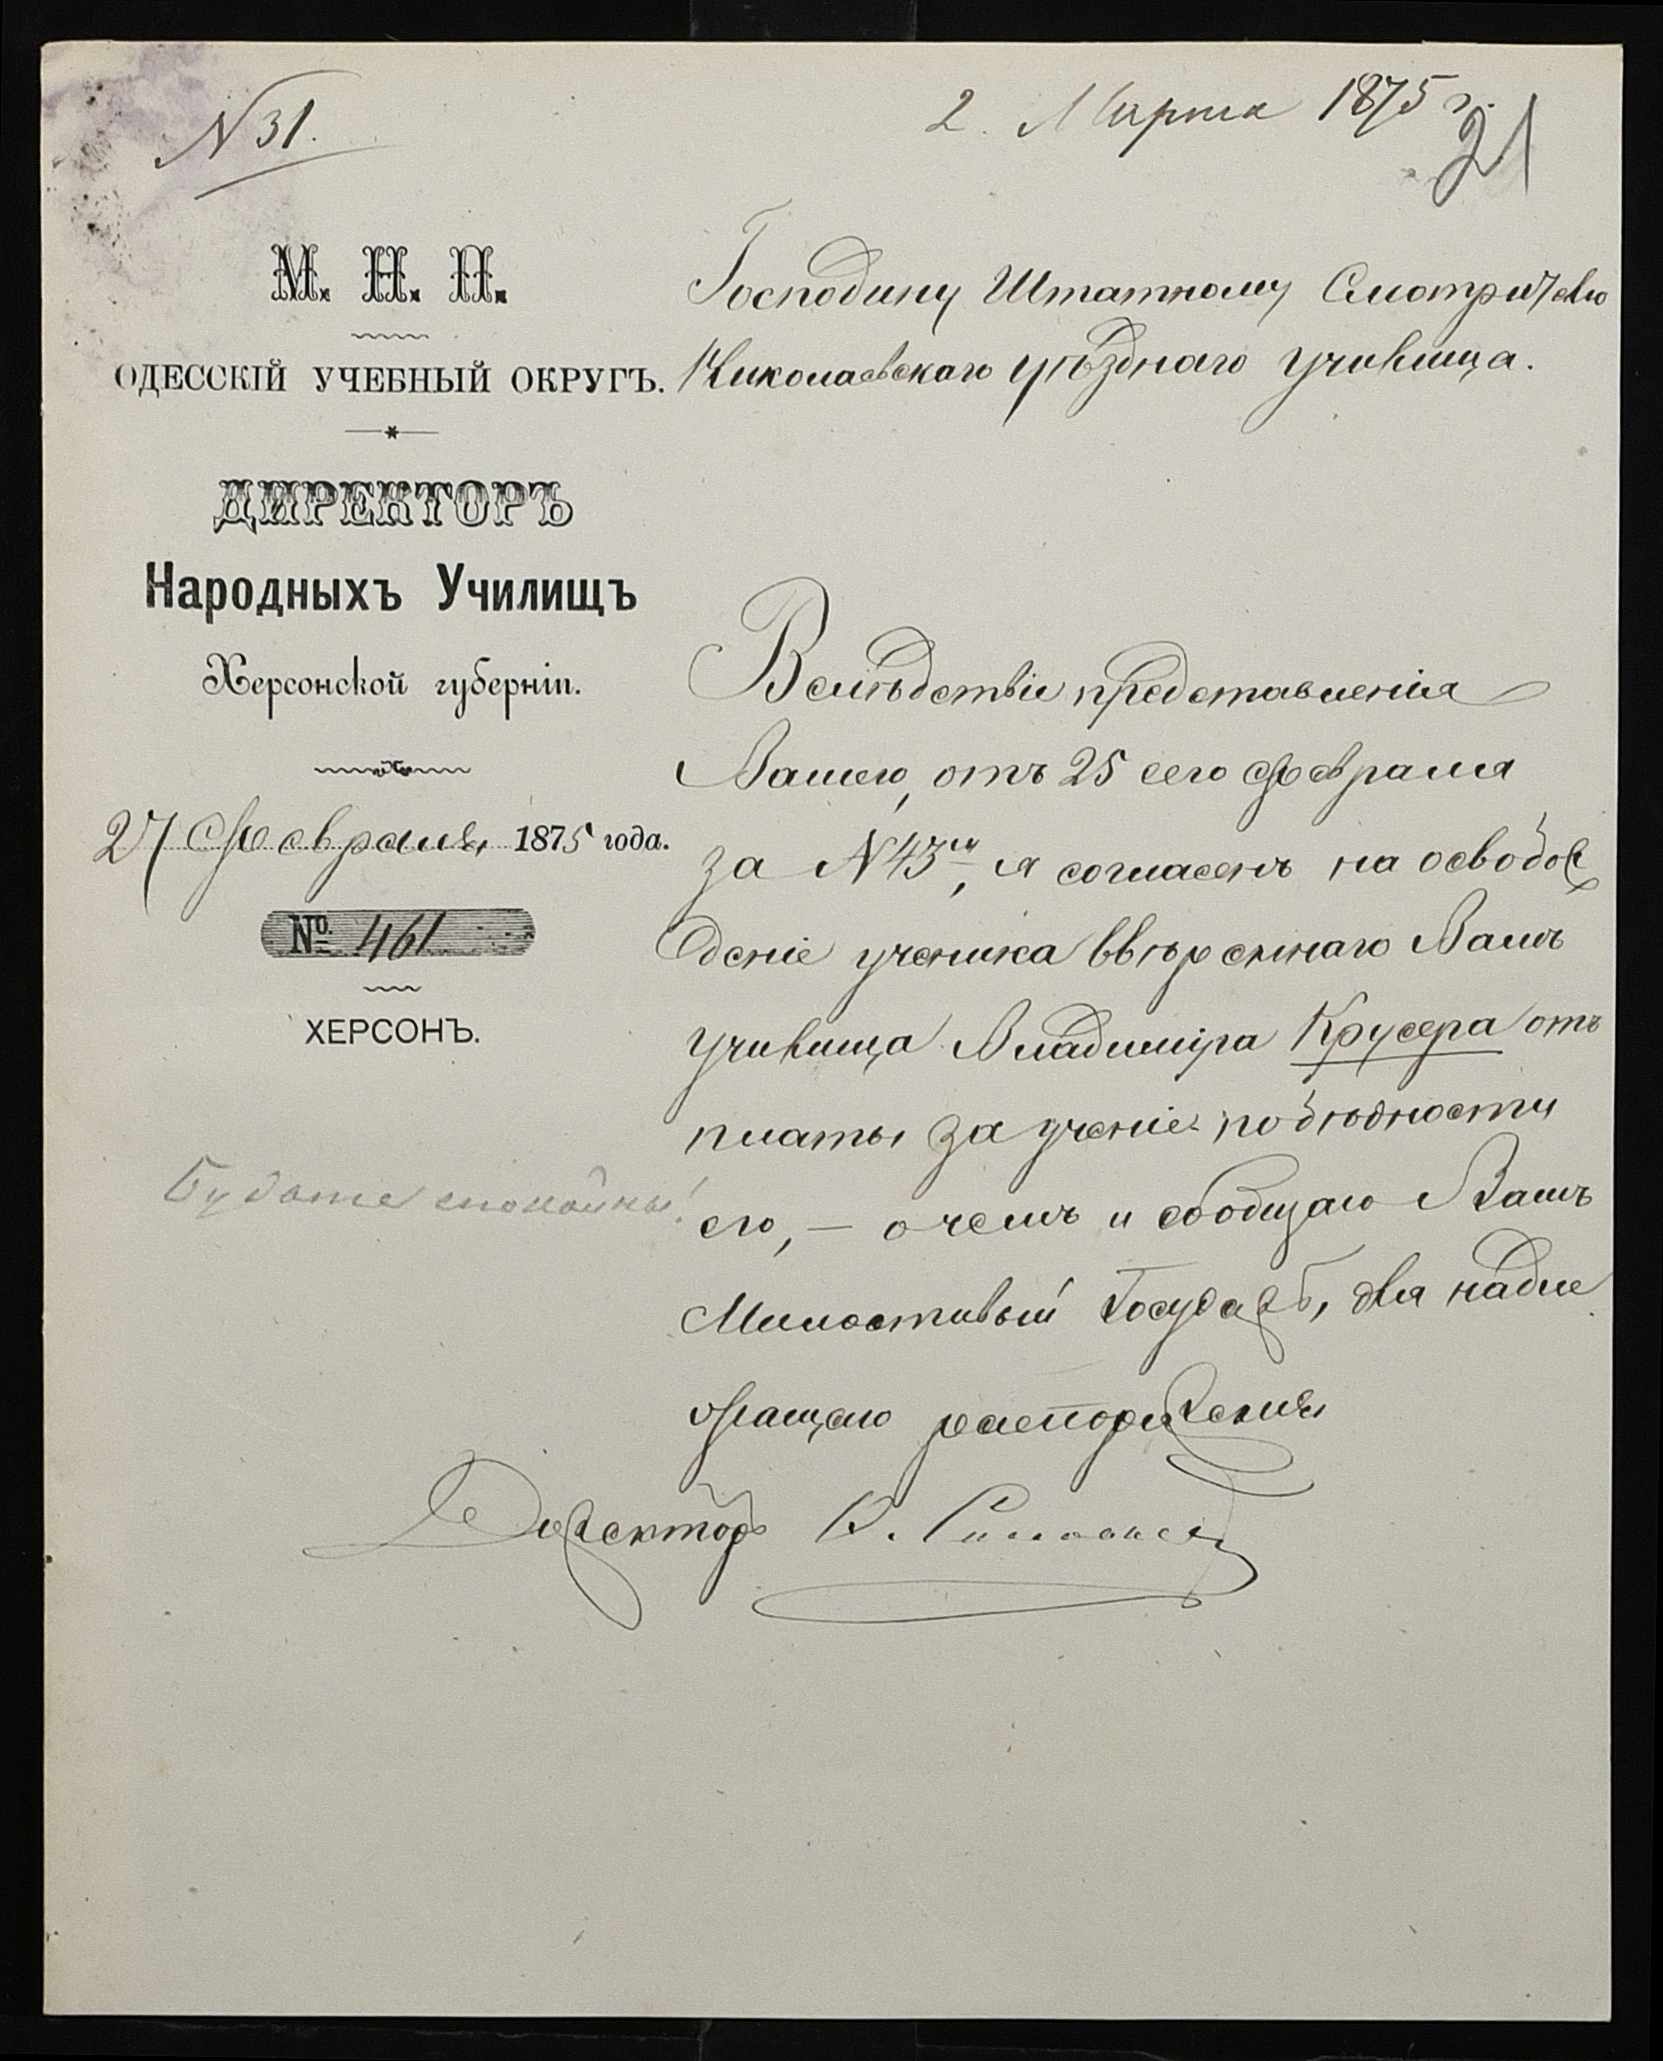 N 31.
2. Марта 1875 г.
21
М. Н. П.
ОДЕССКІЙ УЧЕБНЫЙ ОКРУГЪ.
ДИРЕКТОРЪ
Народныхъ Училищъ
Херсонской губерніи.
27 Февраля 1875 года.
№ 461
ХЕРСОНЪ.
Будьте спокойны!
Господину Штатному Смотрителю
Николаевскаго уѣзднаго училища.
Вслѣдствіе представленія
Вашего, отъ 25 сего Февраля
за N 43м, я согласенъ на освобож
деніе ученика ввѣреннаго Вамъ
училища Владиміра Крусера отъ
платы за ученіе по бѣдности
его, — о чемъ и сообщаю Вамъ
Милостивый Государь, для надле
жащаго распоряженія
Директоръ